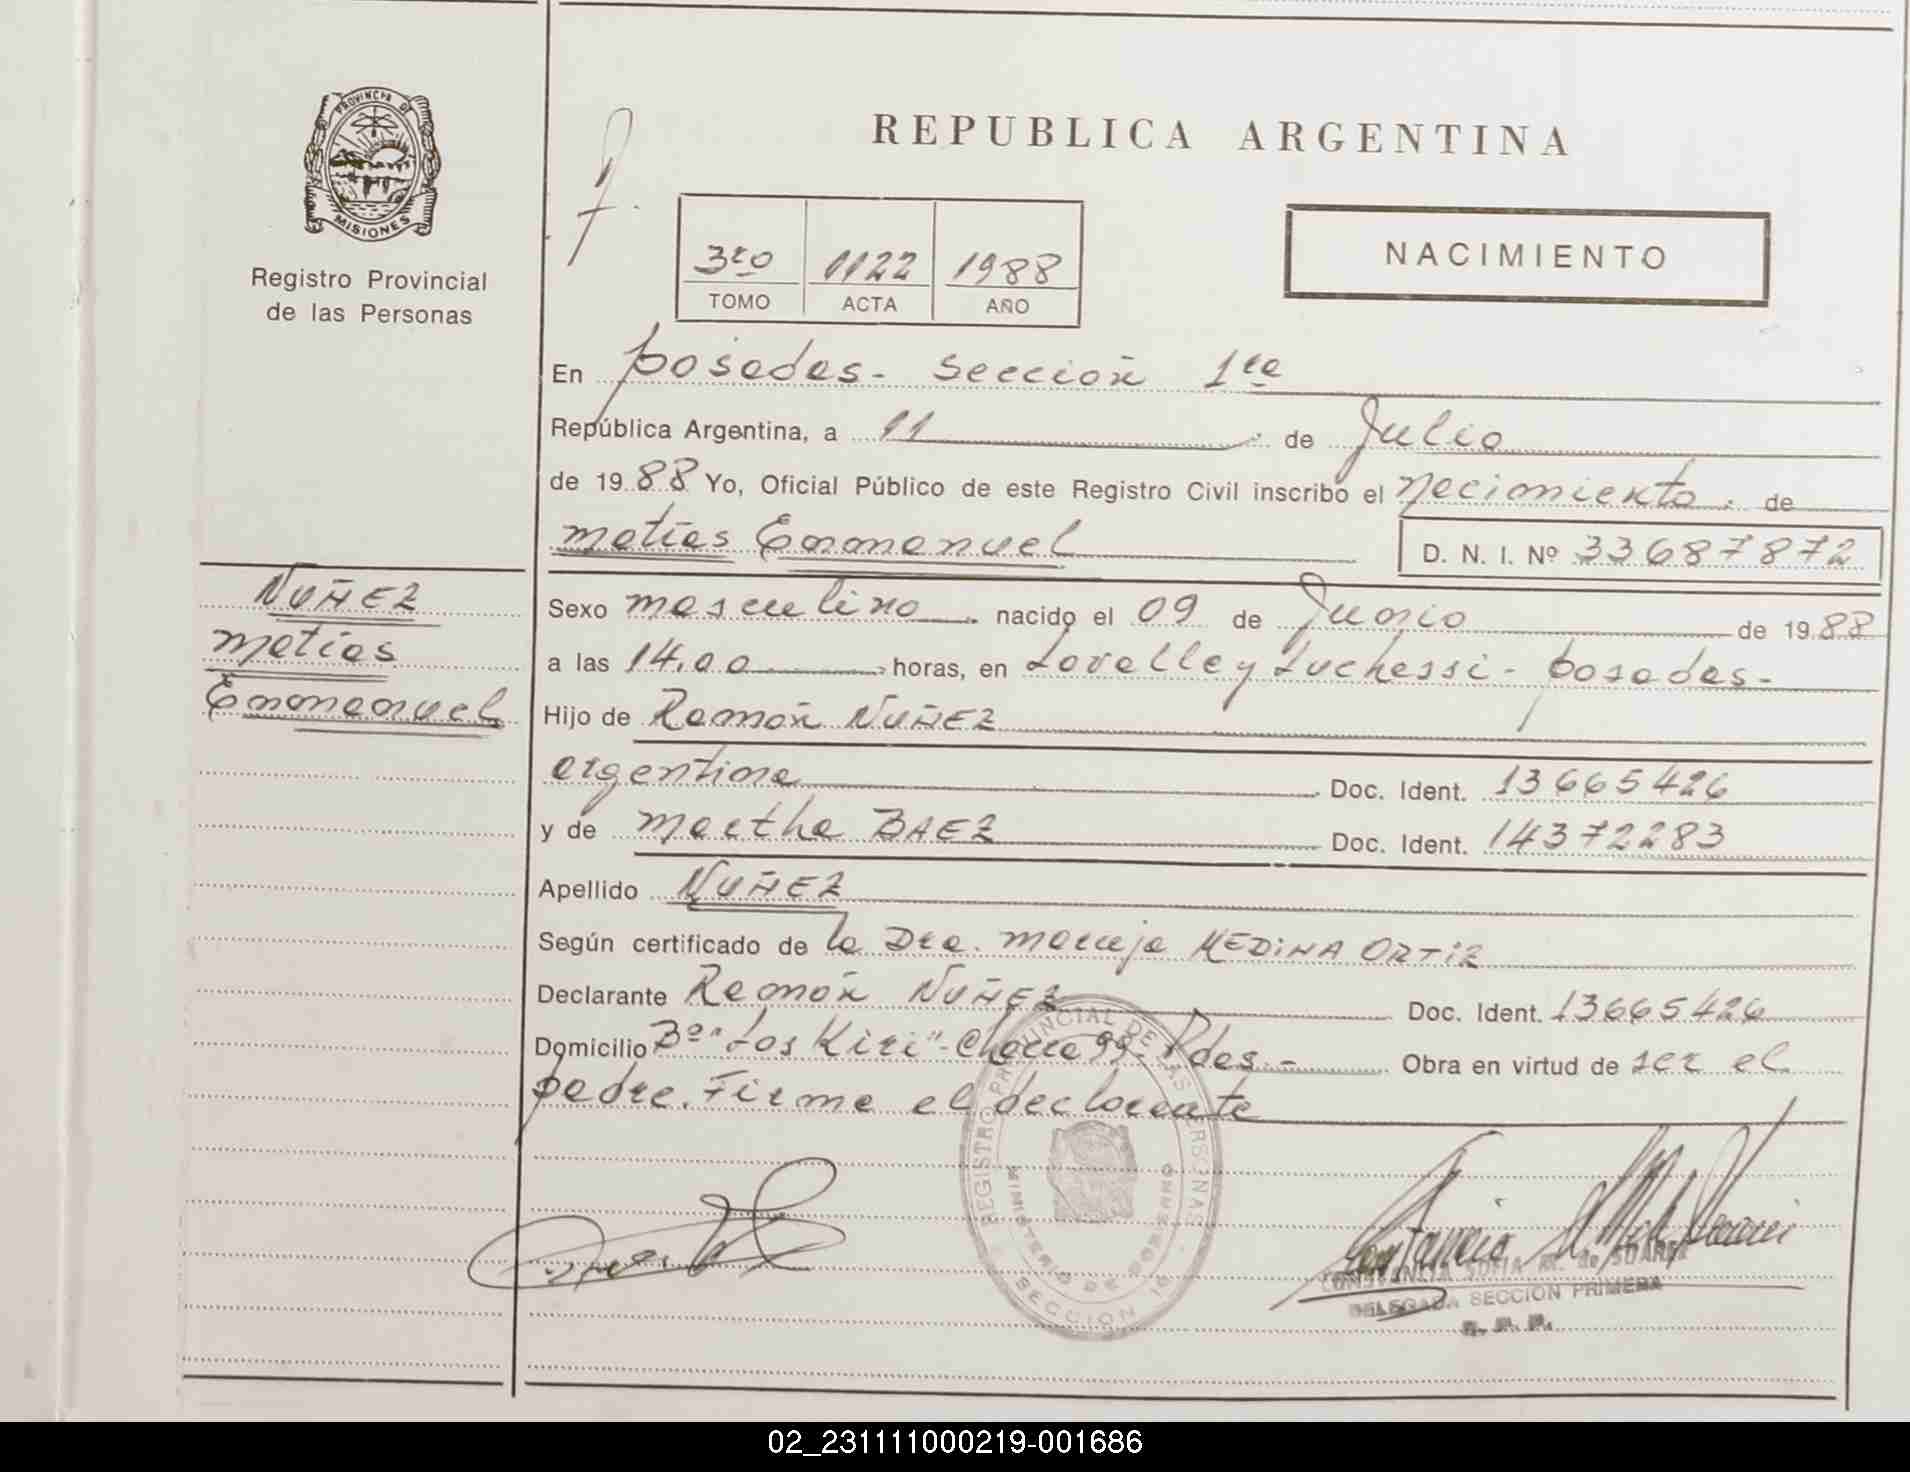 PROVINCIA DE
MISIONES
Registro Provincial
de las Personas
NUÑEZ
Matías
Emmanuel
REPUBLICA ARGENTINA
NACIMIENTO
3ro 1122 1988
TOMO ACTA AÑO
En Posadas - Sección 1ra
República Argentina, a 11 de Julio
de 1988 Yo, Oficial Público de este Registro Civil inscribo el Nacimiento. de
Matías Emmanuel D. N. I. Nº 33687872
Sexo masculino nacido el 09 de Junio de 1988
a las 14.00 horas, en Lavalle y Luchessi - Posadas -
Hijo de Ramón NUÑEZ
argentina Doc. Ident. 13665426
y de Martha BAEZ Doc. Ident. 14372283
Apellido NUÑEZ
Según certificado de la Dra. Maruja MEDINA ORTIZ
Declarante Ramón NUÑEZ Doc. Ident. 13665426
Domicilio Bº "Los Kiri" - Chacra 99 - Pdas. - Obra en virtud de ser el
padre. Firma el declarante
REGISTRO PROVINCIAL DE LAS PERSONAS
MINISTERIO DE GOBIERNO
SECCION 1ª
CONSTANCIA SOFIA M. de SUAREZ
DELEGADA SECCION PRIMERA
02_231111000219-001686